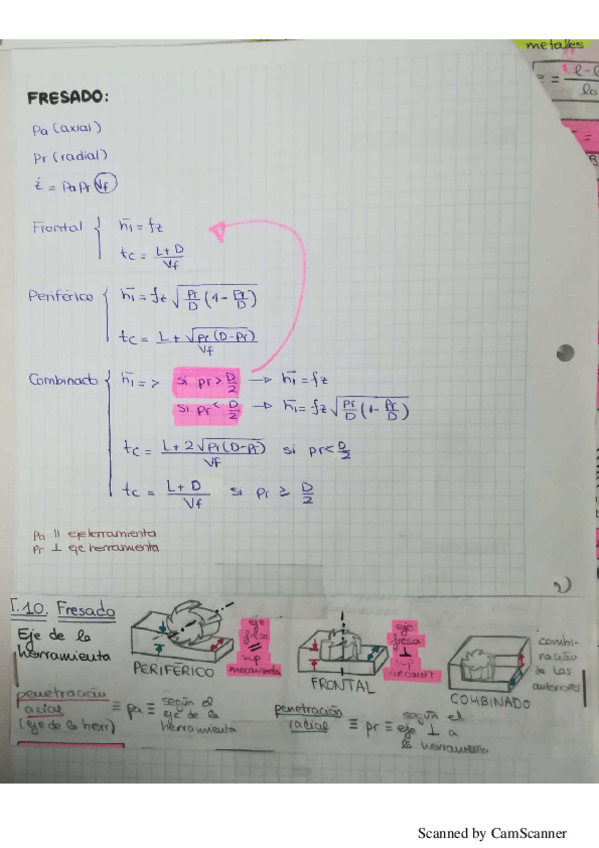 metales
l-l
lo
FRESADO:
Pa (axial)
Pr (radial)
ż = Pa Pr Vf
Frontal { h̄1 = fz
tc = L+D / Vf
Periférico { h̄1 = fz √(Pr/D (1 - Pr/D))
tc = L + √(pr(D-Pr)) / Vf
Combinado { h̄1 => si pr > D/2 → h̄1 = fz
si pr < D/2 → h̄1 = fz √(Pr/D (1 - Pr/D))
tc = L + 2√(Pr(D-Pr)) / Vf si pr < D/2
tc = L + D / Vf si pr ≥ D/2
Pa || eje herramienta
Pr ⊥ eje herramienta
2)
T.10. Fresado
Eje de la
herramienta
PERIFÉRICO
eje
fresa
//
sup
mecanizada
FRONTAL
eje
fresa
⊥
sup
COMBINADO
combi-
nación
de las
anteriores
penetración
axial
(eje de la herr)
≡ pa ≡ según el
eje de la
herramienta
penetración
radial
≡ pr ≡ según el
eje ⊥ a
la herramienta
Scanned by CamScanner